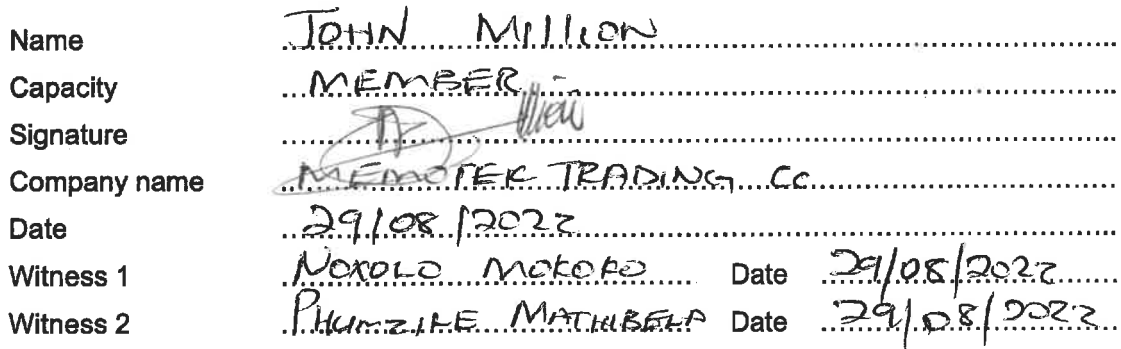 Name JOHN MILLION
Capacity MEMBER
Signature
Company name MEMOTEK TRADING CC
Date 29/08/2022
Witness 1 NOXOLO MOKOKO Date 29/08/2022
Witness 2 PHUMZILE MATHIBELA Date 29/08/2022